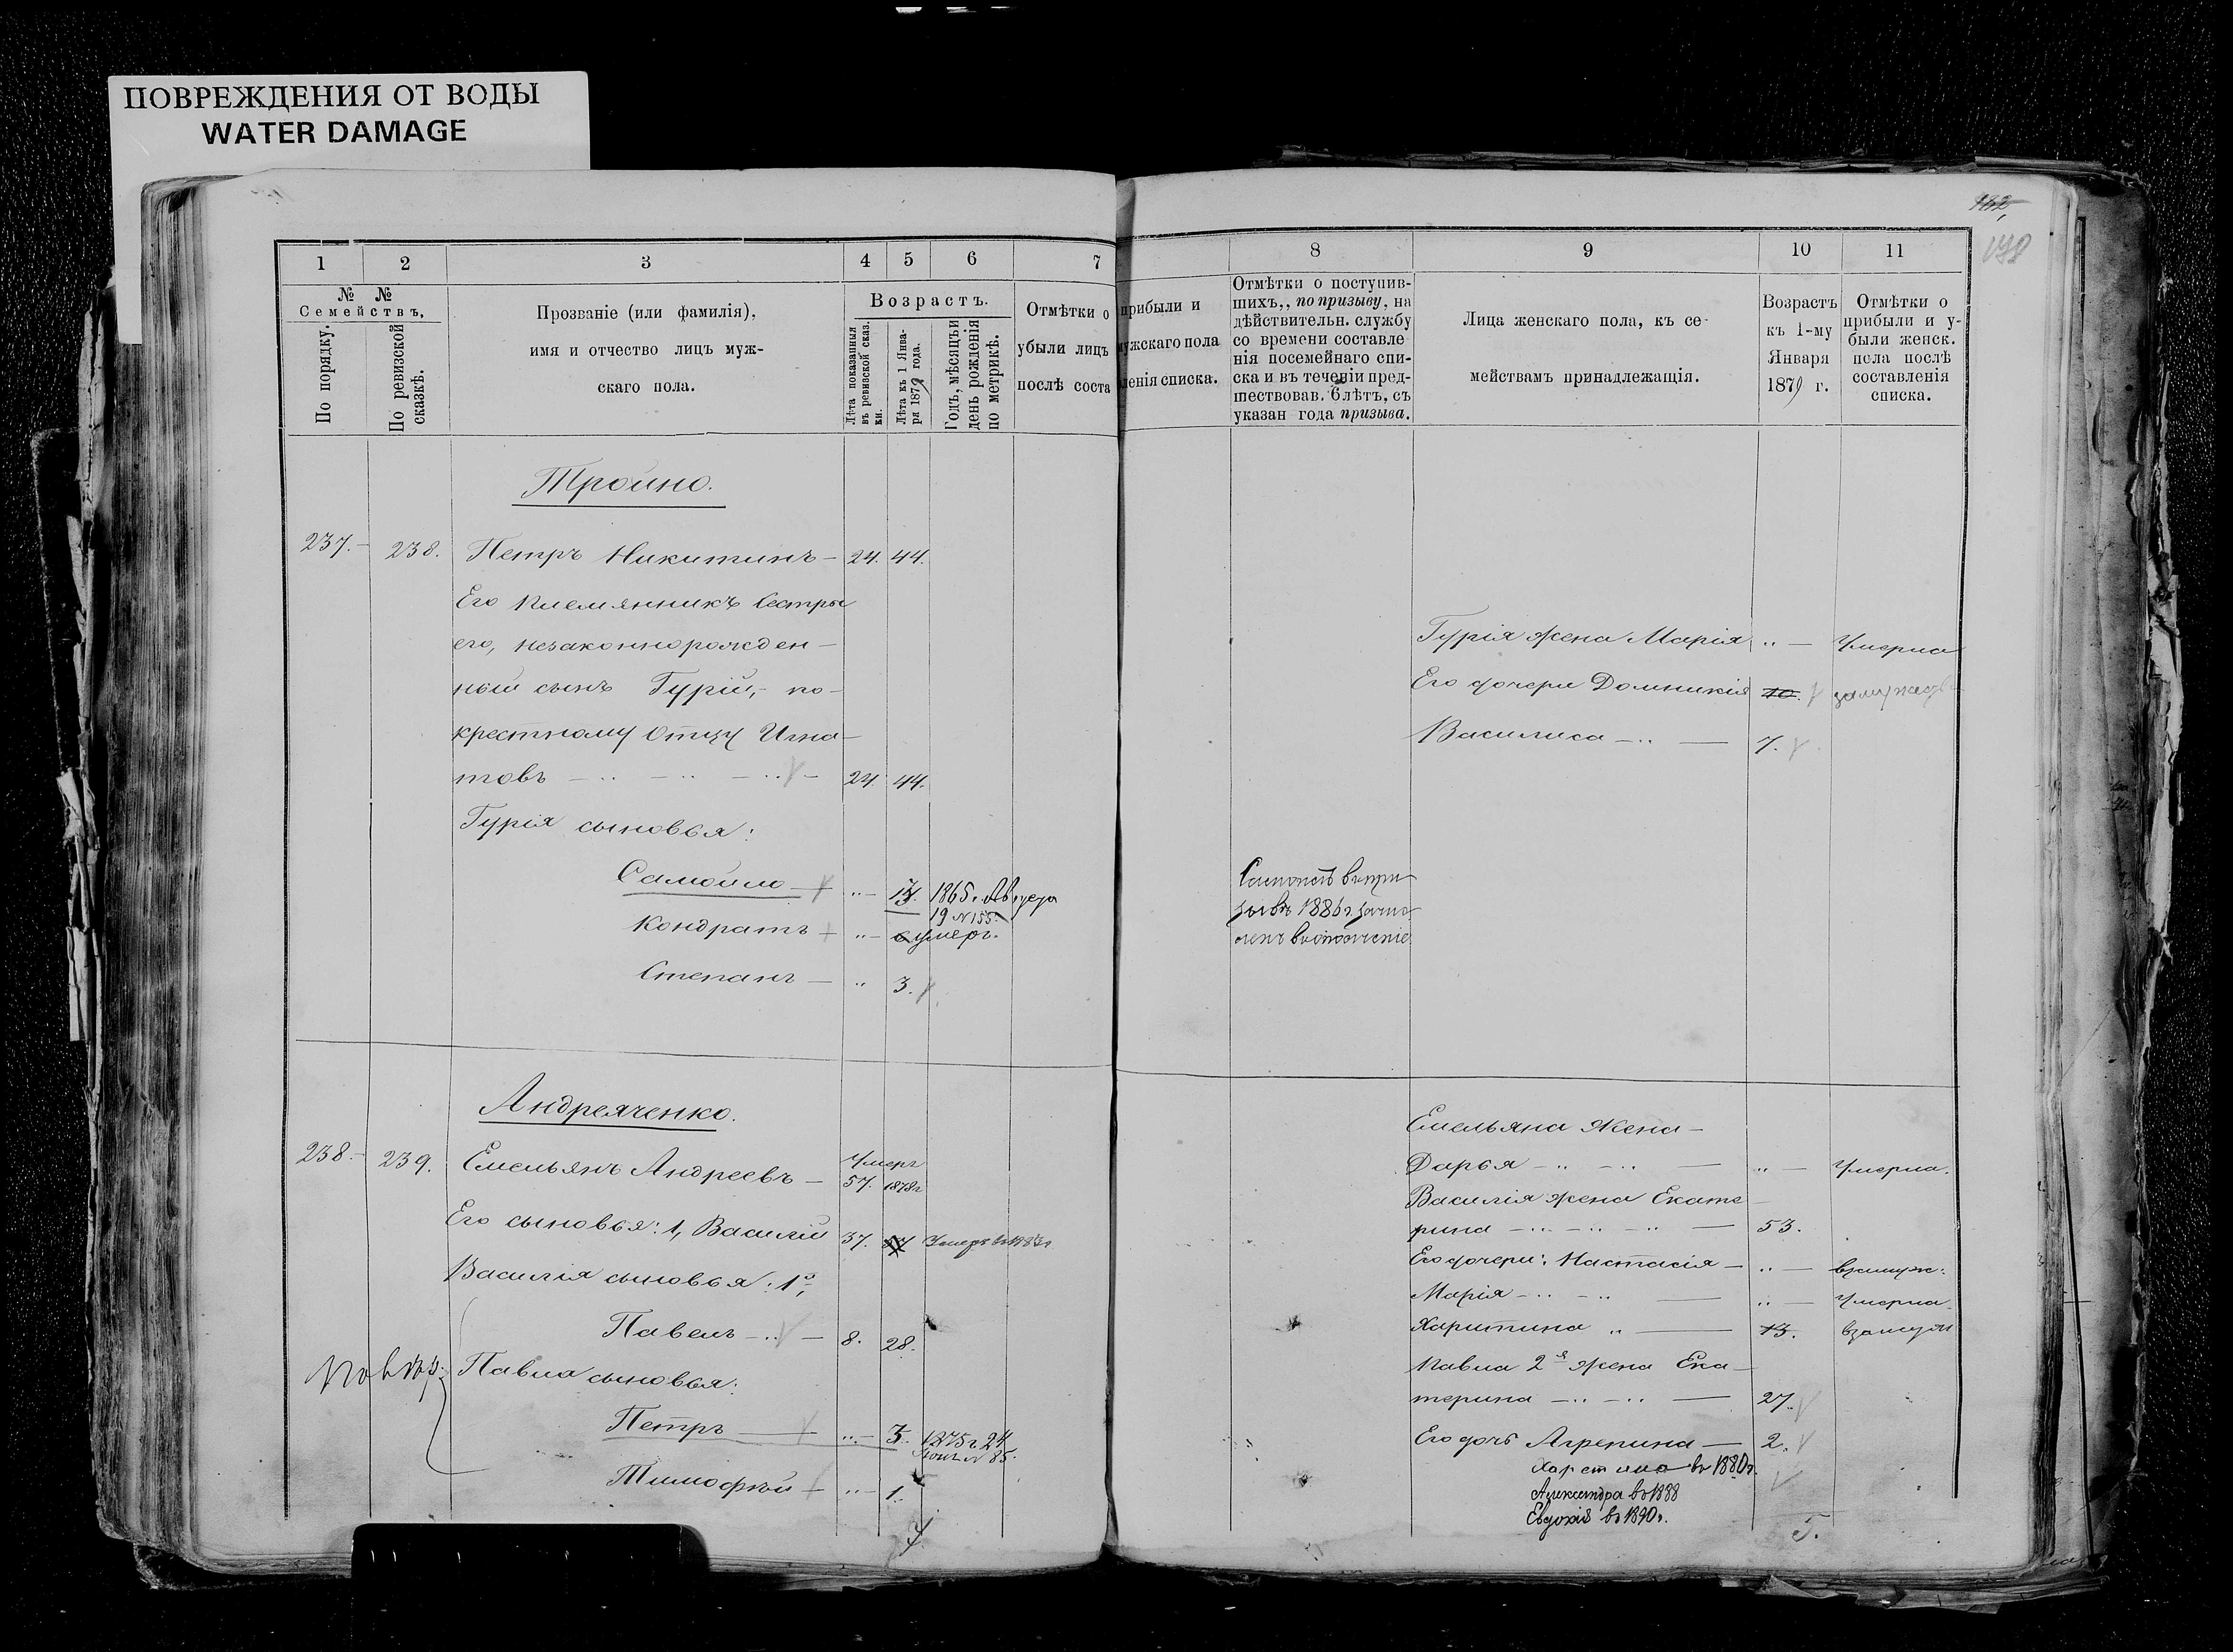 ПОВРЕЖДЕНИЯ ОТ ВОДЫ
WATER DAMAGE
182
1 2 3 4 5 6 7
№ №
Семействъ,
По порядку.
По ревизской сказкѣ.
Прозваніе (или фамилія),
имя и отчество лицъ муж-
скаго пола.
Возрастъ.
Лѣта показанныя въ ревизской сказ. ки.
Лѣта къ 1 Янва- ря 1879 года.
Годъ, мѣсяцъ и день рожденія по метрикѣ.
Отмѣтки о прибыли и
убыли лицъ мужскаго пола
послѣ составленія списка.
8 9 10 11
Отмѣтки о поступив-
шихъ,, по призыву, на
дѣйствительн. службу
со времени составле
нія посемейнаго спи-
ска и въ теченіи пред-
шествовав. 6 лѣтъ, съ
указан года призыва.
Лица женскаго пола, къ се-
мействамъ принадлежащія.
Возрастъ
къ 1-му
Января
1879 г.
Отмѣтки о
прибыли и у-
были женск.
пола послѣ
составленія
списка.
Тройно.
237.- 238. Петръ Никитинъ - 24. 44.
Его племянникъ Сестры
его, незаконнорожден-
ный сынъ Гурій,- по-
крестному Отцу Игна-
товъ - 24. 44.
Гурія сыновья:
Самойло - 13. 1865. Августа
19 N 155.
Кондратъ - умеръ.
Степанъ - 3.
Самойлъ въ при-
зывъ 1886 г. зачис-
ленъ въ ополченіе
Гурія жена Марія - Умерла
Его дочери Домникія 10. замужемъ
Василиса - 7.
Андреяченко.
238.- 239. Емельянъ Андреевъ - 57. Умеръ 1878г
Его сыновья: 1, Василій 37. 57
Василія сыновья: 1й,
Павелъ - 8. 28.
Павла сыновья:
Петръ - 3. 1875 г. 24
N 85.
Тимофѣй - 1.
Емельяна жена -
Дарья - Умерла.
Василія жена Екате
рина - 53.
Его дочери: Настасія - взамуж:
Марія - Умерла.
Харитина 13. взамуж
Павла 2я жена Ека-
терина - 27.
Его дочь Агрепина - 2.
Харетина въ 1880г.
Александра въ 1888
Евдокія въ 1890г.
5.